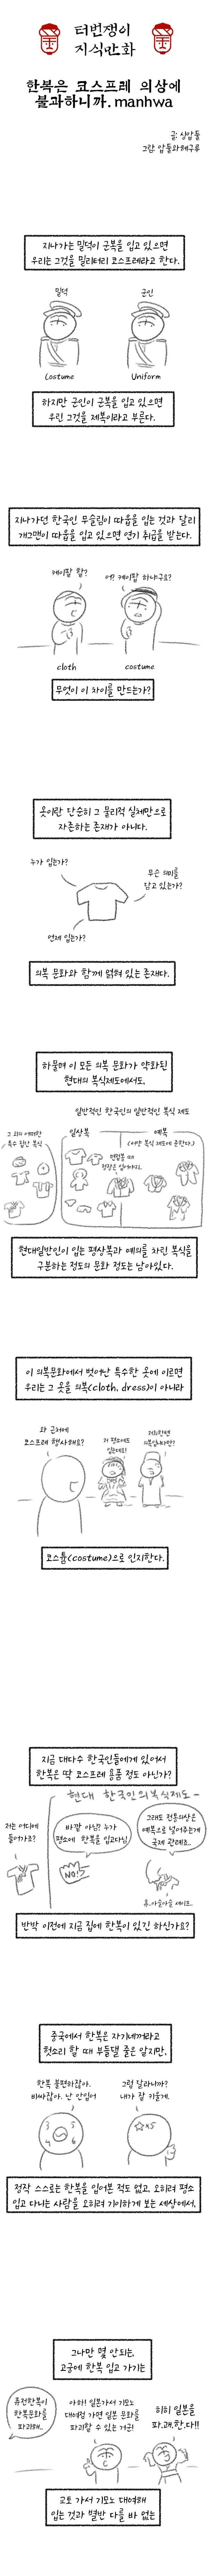 터번쟁이
지식만화
한복은 코스프레 의상에
불과하니까. manhwa
글: 싱압둘
그림: 압둘와헤구루
지나가는 밀덕이 군복을 입고 있으면
우리는 그것을 밀리터리 코스프레라고 한다.
밀덕
군인
Costume
Uniform
하지만 군인이 군복을 입고 있으면
우린 그것을 제복이라고 부른다.
지나가던 한국인 무슬림이 따웁을 입는 것과 달리
개그맨이 따웁을 입고 있으면 연기 취급을 받는다.
케이팝 할?
에? 케이팝 하나구요?
cloth
costume
무엇이 이 차이를 만드는가?
옷이란 단순히 그 물리적 실체만으로
자존하는 존재가 아니다.
누가 입는가?
무슨 의미를
담고 있는가?
언제 입는가?
의복 문화와 함께 얽혀 있는 존재다.
하물며 이 모든 의복 문화가 약화된
현대의 복식제도에서도,
일반적인 한국인의 일반적인 복식 제도
그 외의 어떠한
특수 집단 복식
일상복
예복
(서양 복식 제도에 준한다.)
면접볼 때
정장은 입어야지..
현대일반인이 입는 평상복과 예의를 차린 복식을
구분하는 정도의 문화 정도는 남아있다.
이 의복문화에서 벗어난 특수한 옷에 이르면
우리는 그 옷을 의복(cloth, dress)이 아니라
와 근처에
코스프레 행사해요?
저 평소에도
입는데요!
저희한텐
의복입니다만?
코스튬(costume)으로 인지한다.
지금 대다수 한국인들에게 있어서
한복은 딱 코스프레 용품 정도 아닌가?
현대 한국인의 복식제도
저는 어디에
들어가죠?
바깥 아님? 누가
평소에 한복을 입고다님
NO!
그래도 전통의상은
예복으로 넣어주는게
국제 관례죠..
휴..아슬아슬 세이프..
반박 이전에 지금 집에 한복이 있긴 하신가요?
중국에서 한복은 자기네꺼라고
헛소리 할 때 부들댈 줄은 알지만,
한복 불편하잖아.
비싸잖아. 난 안입어
그럼 달라니까?
내가 잘 키울게.
정작 스스로는 한복을 입어본 적도 없고, 오히려 평소
입고 다니는 사람을 오히려 기이하게 보는 세상에서,
그나마 몇 안되는,
고궁에 한복 입고 가기는
퓨전한복이
한복문화를
파괴해..
아하! 일본가서 기모노
대여점 가면 일본 문화를
파괴할 수 있는 거군!
히히 일본을
파.괘.한.다!!
교토 가서 기모노 대여해
입는 것과 별반 다를 바 없는